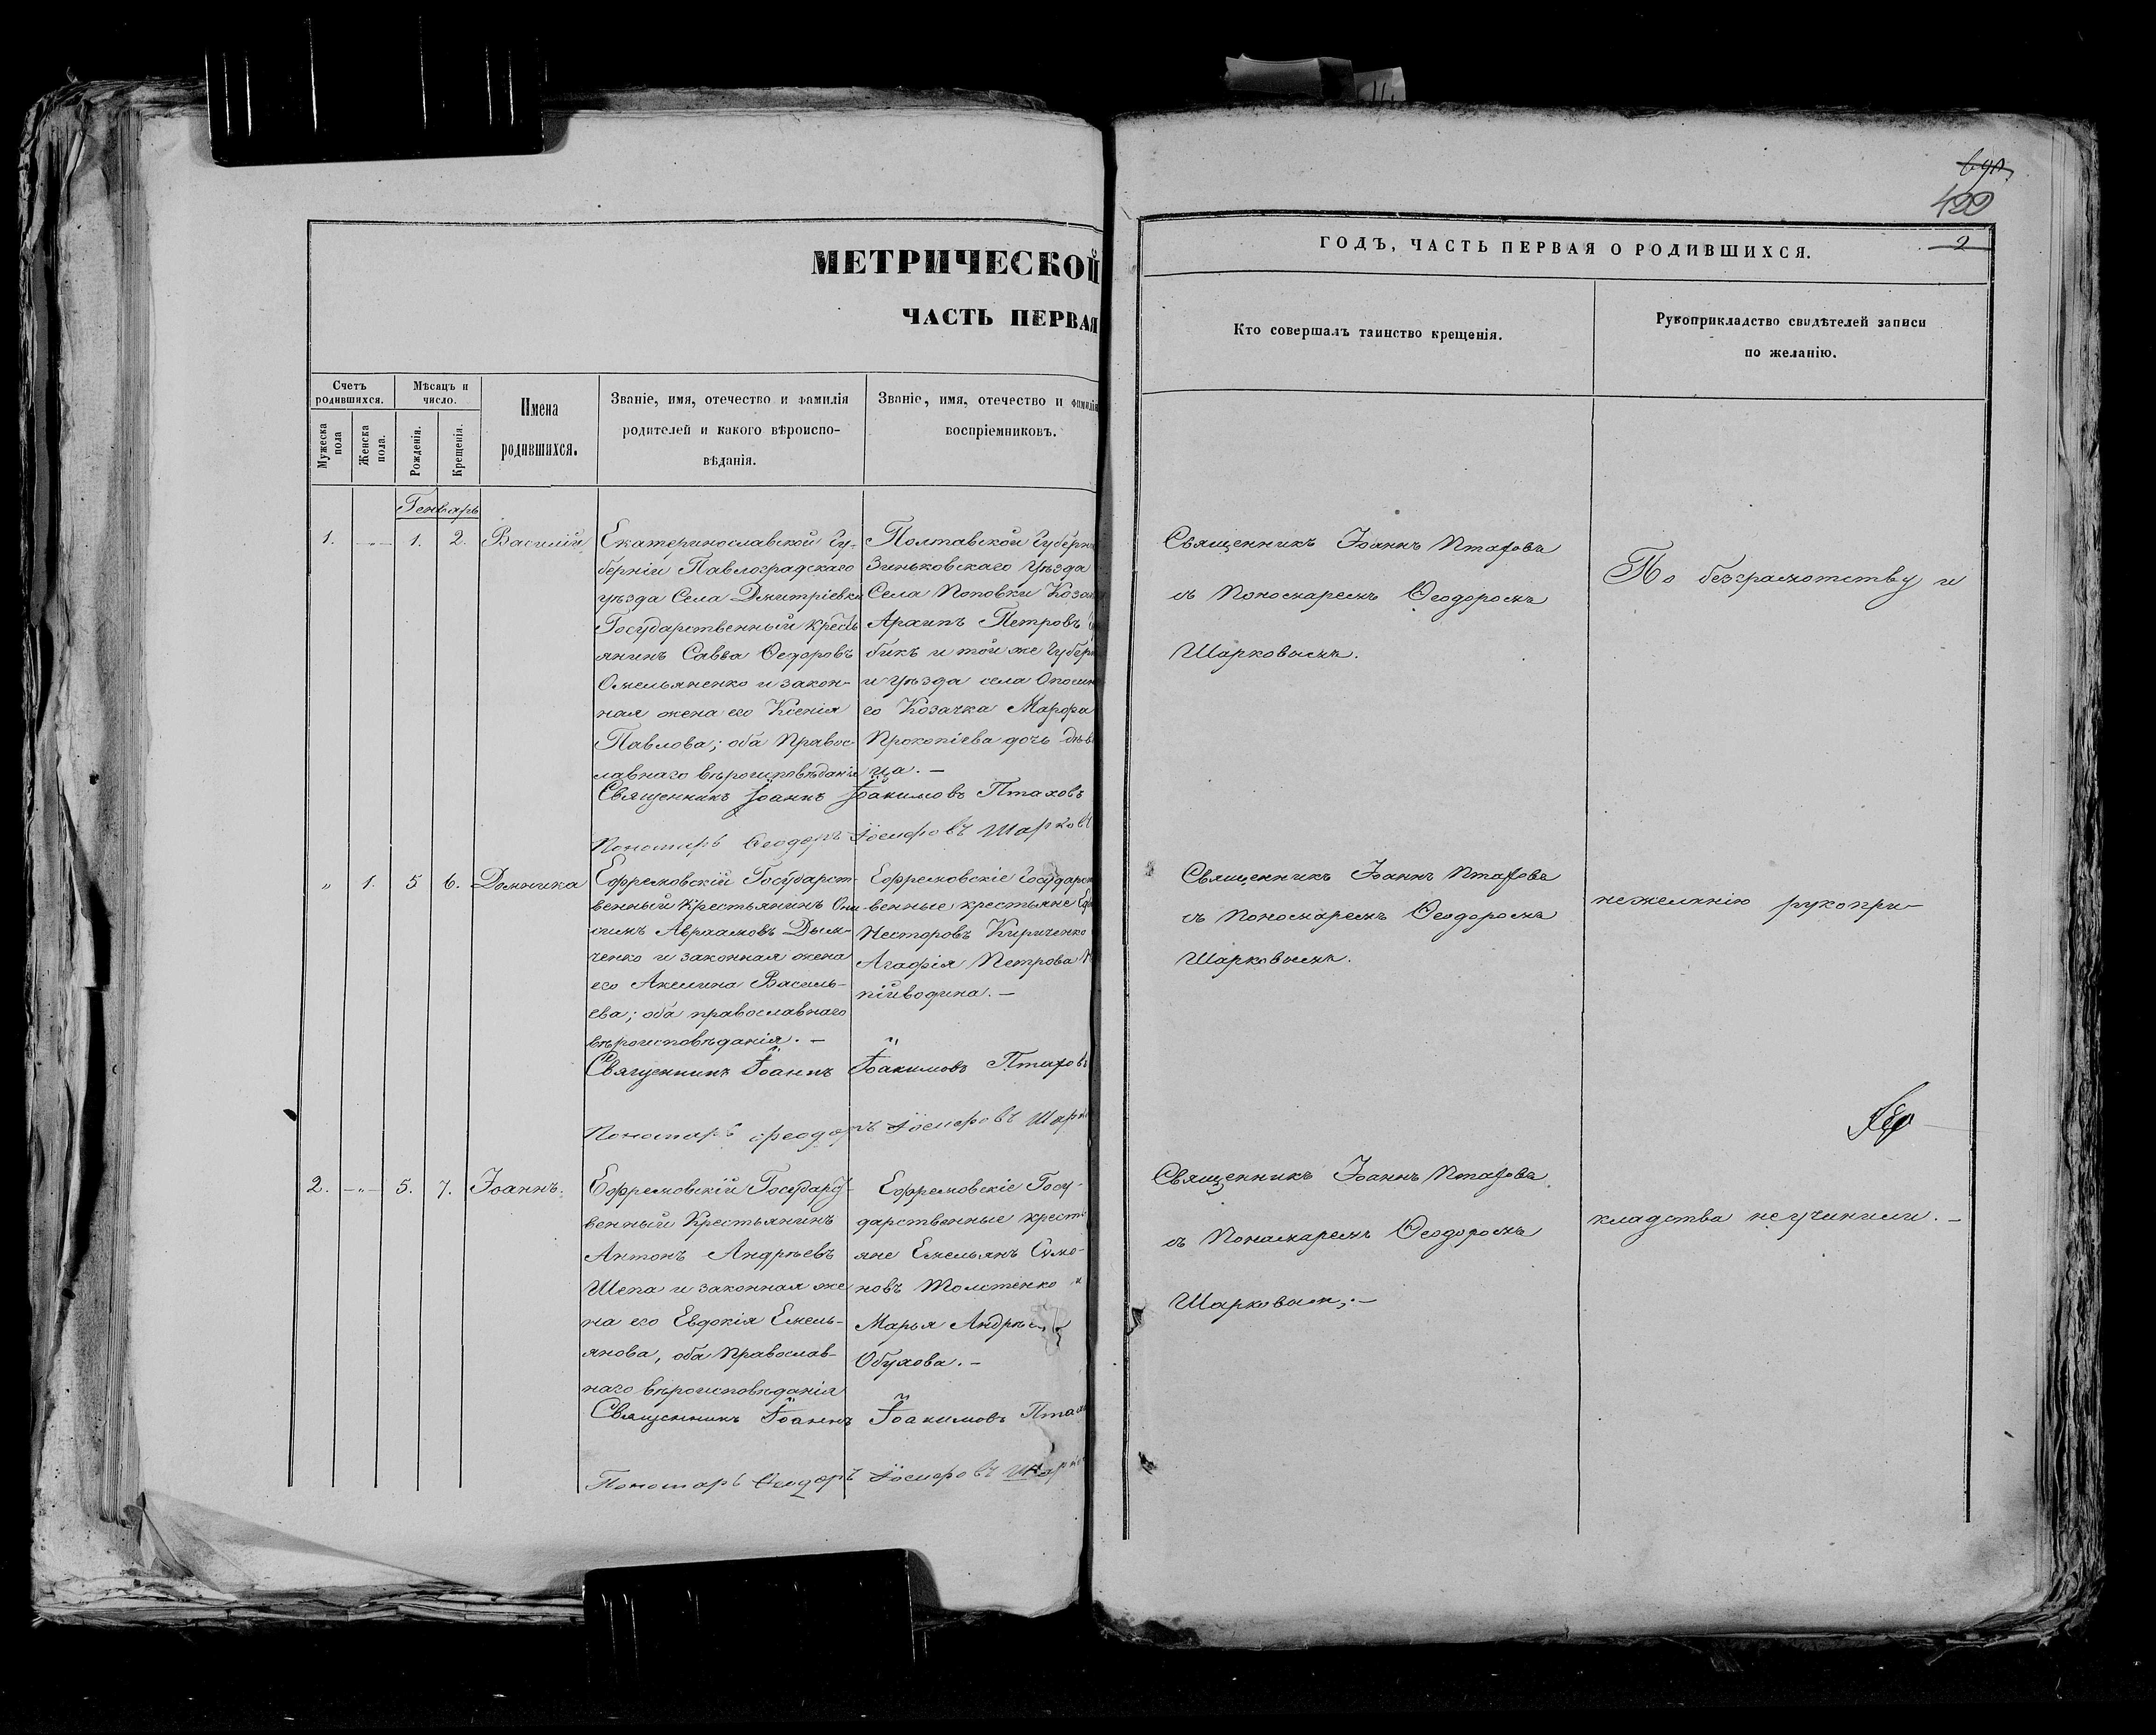 МЕТРИЧЕСКОЙ
ЧАСТЬ ПЕРВАЯ
Счетъ родившихся.
Мужеска пола
Женска пола.
Мѣсяцъ и число.
Рожденія.
Крещенія.
Имена родившихся.
Званіе, имя, отечество и фамилія
родителей и какого вѣроиспо-
вѣданія.
Званіе, имя, отечество и фамилія
воспріемниковъ.
Генварь
1. 1. 2. Василій
Екатеринославской Гу-
берніи Павлоградскаго
уѣзда Села Дмитріевки
Государственный кресть
янинъ Савва Ѳедоровъ
Омельяненко и закон-
ная жена его Ксенія
Павлова; оба Правос-
лавнаго вѣроисповѣданія
Полтавской Губерн
Зиньковскаго Уѣзда
Села Поповки Коза
Архипъ Петровъ
бикъ и той же Губер
и Уѣзда села Опошн
его Козачка Марфа
Прокопіева дочь дѣв
ца. —
Священникъ Іоаннъ Іоакимовъ Птаховъ
Пономарь Ѳеодоръ Іосифовъ Шарковъ
" 1. 5 6. Домника
Ефремовскій Государст-
венный Крестьянинъ Они
симъ Авраамовъ Дым-
ченко и законная жена
его Акилина Василь-
ева; оба православнаго
вѣроисповѣданія. —
Ефремовскіе Государст
венные крестьяне
Несторовъ Кириченко
Агафія Петрова
пійводина. —
Священникъ Іоаннъ Іоакимовъ Птаховъ
Пономарь Ѳеодоръ Іосифовъ Шарк
2. —"— 5. 7. Іоаннъ.
Ефремовскій Государст-
венный Крестьянинъ
Антонъ Андреевъ
Шепа и законная же
на его Евдокія Емель-
янова, оба Православ-
наго вѣроисповѣданія
Ефремовскіе Госу-
дарственные крестъ
яне Емельянъ Симо-
новъ Толстенко и
Марья Андрѣе
Обухова. —
Священникъ Іоаннъ Іоакимовъ Птахо
Пономарь Ѳеодоръ Іосифовъ Шарк
422
2
ГОДЪ, ЧАСТЬ ПЕРВАЯ О РОДИВШИХСЯ.
Кто совершалъ таинство крещенія.
Рукоприкладство свидѣтелей записи
по желанію.
Священникъ Іоаннъ Птаховъ
съ Пономаремъ Ѳеодоромъ
Шарковымъ.
По безграмотству и
Священникъ Іоаннъ Птаховъ
съ Пономаремъ Ѳеодоромъ
Шарковымъ.
нежеланію рукопри-
Священникъ Іоаннъ Птаховъ
съ Пономаремъ Ѳеодоромъ
Шарковым. —
кладства неучинили. —